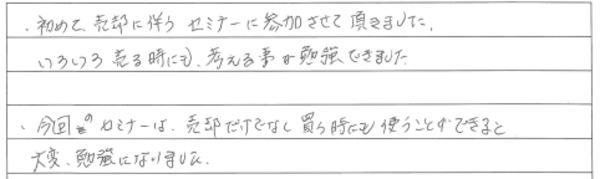 ・初めて、売却に伴う セミナーに参加させて頂きました。
いろいろ売る時にも、考える事が勉強できました
・今回のセミナーは、売却だけでなく買う時にも使うことができると
大変、勉強になりました。